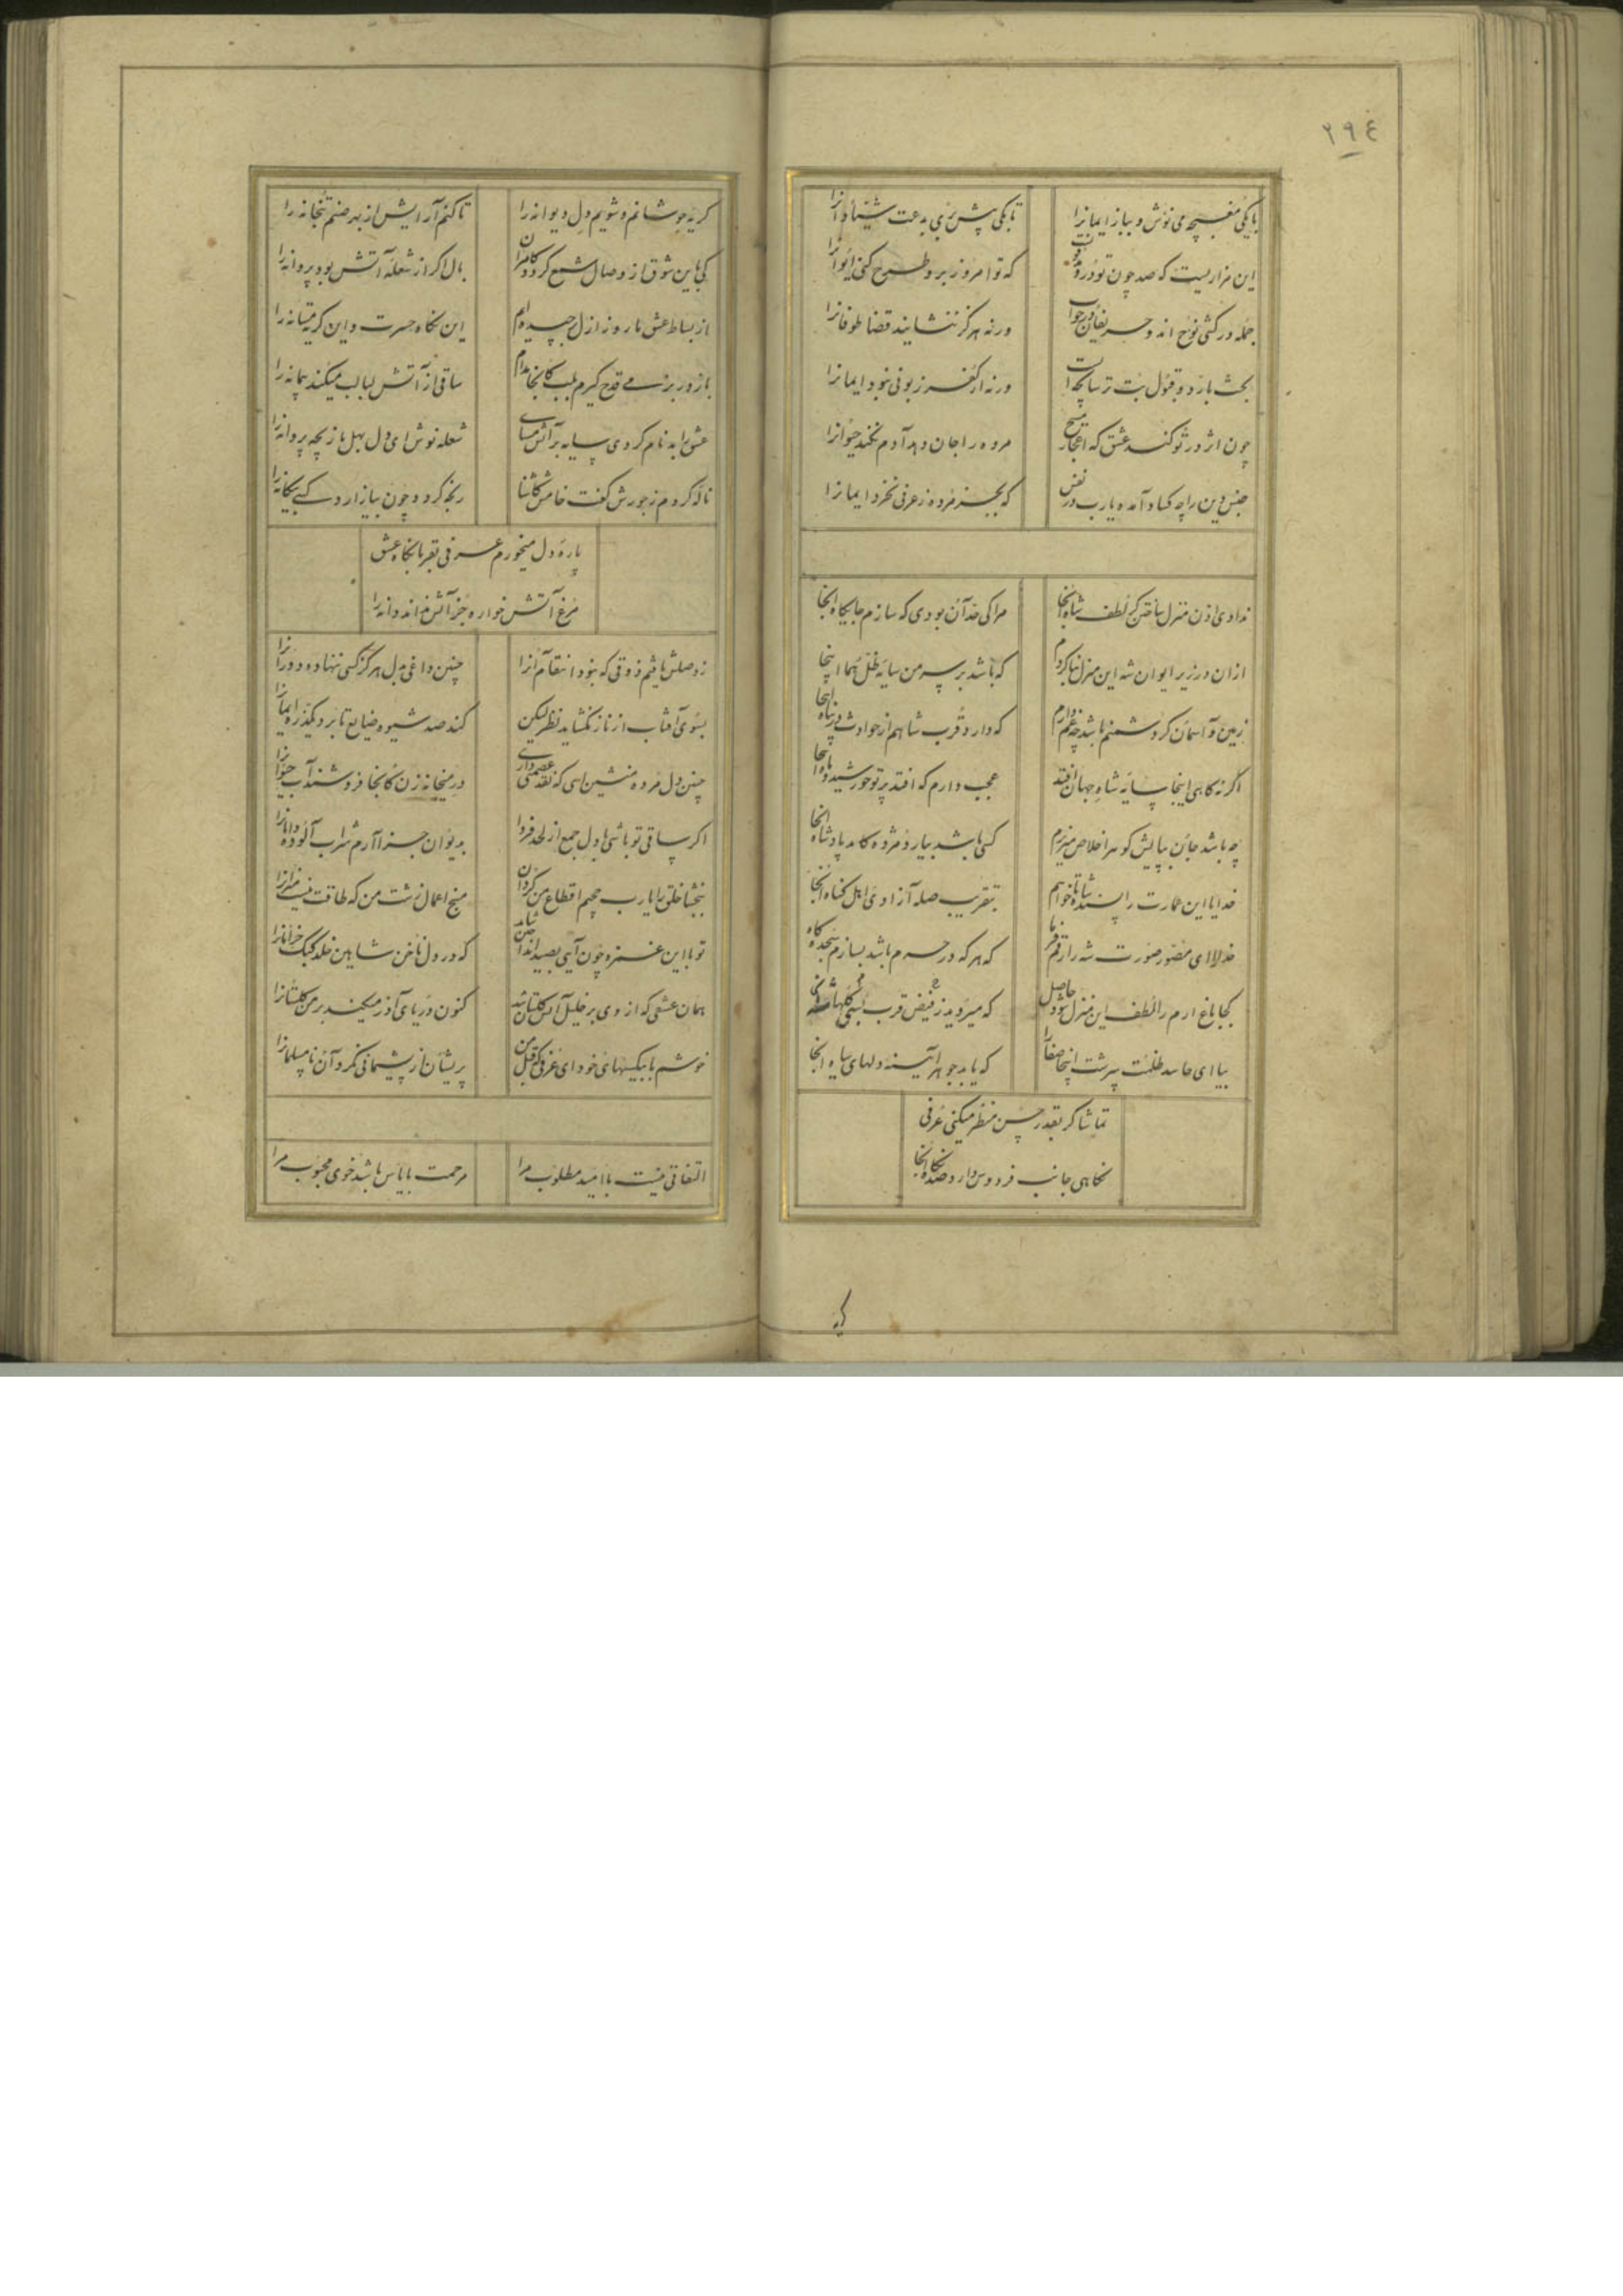 ٢٩٤
با یکی مغبچه می نوش و بباز ایمانرا
تا بکی پیش بری بدعت شیادانرا
این مزاریست که صد چون تو درو مدفونست
که تو امروز برو طرح کنی ایوانرا
جمله در کشتی نوح اند و حریفان در خواب
ورنه هرگز ننشانید قضا طوفانرا
بحث با رد و قبول بت ترسابچه است
ورنه از کفر زبونی نبود ایمانرا
چون اثر در تو کند عشق که اعجاز مسیح
مرده را جان دهد آدم نکند حیوانرا
جنس دین را چه کساد آمده یارب در نفس
که بجز مژده ز عرفی نخرد ایمانرا
ندادی اذن منزل ساختن گر لطف شاه اینجا
مرا کی حد آن بودی که سازم جایگاه اینجا
ازان در زیر ایوان شه این منزل بنا کردم
که باشد بر سر من سایه ظل هما اینجا
زمین و آسمان گر دشمنم باشد چه غم دارم
که دارد قرب شاهم از حوادث در پناه اینجا
اگر نه گاهی اینجا سایه شاه جهان افتد
عجب دارم که افتد پرتو خورشید و ماه اینجا
چه باشد جان بپایش کو سر اخلاص میریزم
کسی باشد بیارد مژده کامد پادشاه اینجا
خدایا این عمارت را پسند شاه میخواهم
بتقریب صله آزادی اهل گناه اینجا
خدا را ای مصور صورت شه را رقم فرما
که هر که در حرم باشد بسازم سجده گاه
کجا باغ ارم را لطف این منزل شود حاصل
که میروید ز فیض قرب
بیا ای حاسد ظلمت سرشت اینجا صفا را
که یابد جوهر آیینه دلهای سیاه اینجا
تماشا گر بقدر حسن منظر میکنی عرفی
نگاهی جانب فردوس دار و صد نگاه اینجا
گریه
گریه جوشانم و شویم دل دیوانه را
تا کنم آرایش از بهر صنم بتخانه را
کی باین شوق از وصال شمع گردد کامران
بال اگر از شعله آتش بود پروانه را
از بساط عشق تا روز ازل چیده ام
این نگاه حسرت و این گریه مستانه را
باز در بزمی قدح گیرم بلب کانجا مدام
ساقی از آتش لبالب میکند پیمانه را
عشق را بدنام کردی سایه بر آتش مسای
شعله نوش ای دل بهل بازیچه پروانه را
ناله کردم ز جورش گفت خامش کاشنا
رنجه گردد چون بیازارد کسی بیگانه را
پاره دل میخورم عرفی بقربانگاه عشق
مرغ آتش خواره جز آتش نداند دانه را
ز وصلش یافتم ذوقی که نبود انتقام آنرا
چنین داغی بدل هرگز کسی ننهاده دورانرا
بسوی آفتاب از ناز نگشاید نظر لیکن
کند صد شیوه ضایع تا برد یکذره ایمانرا
چنین دل مرده منشین ای که نقد عصمتی داری
در میخانه زن کانجا فروشند آب حیوانرا
اگر ساقی تو باشی با دل جمع از لحد فردا
بدیوان جزا آرم شراب آلوده دامانرا
ببخشا خلق را یارب چمیم اقطاع من گردان
منج اعمال زشت من که طاقت نیست میزانرا
تو با این غمزه چون آیی بصید
که در دل ناخن شاهین خلد کبک خرامانرا
همان عشقی که از وی بر خلیل آتش گلستان شد
کنون دریای آذر میکند بر من گلستانرا
خوشم با بیکسیهای خود ای عرفی که قتل من
پریشان از پشیمانی نکرد آن نامسلمانرا
التفاتی نیست با امید مطلوب مرا
مرحمت با یاس باشد خوی محبوب مرا